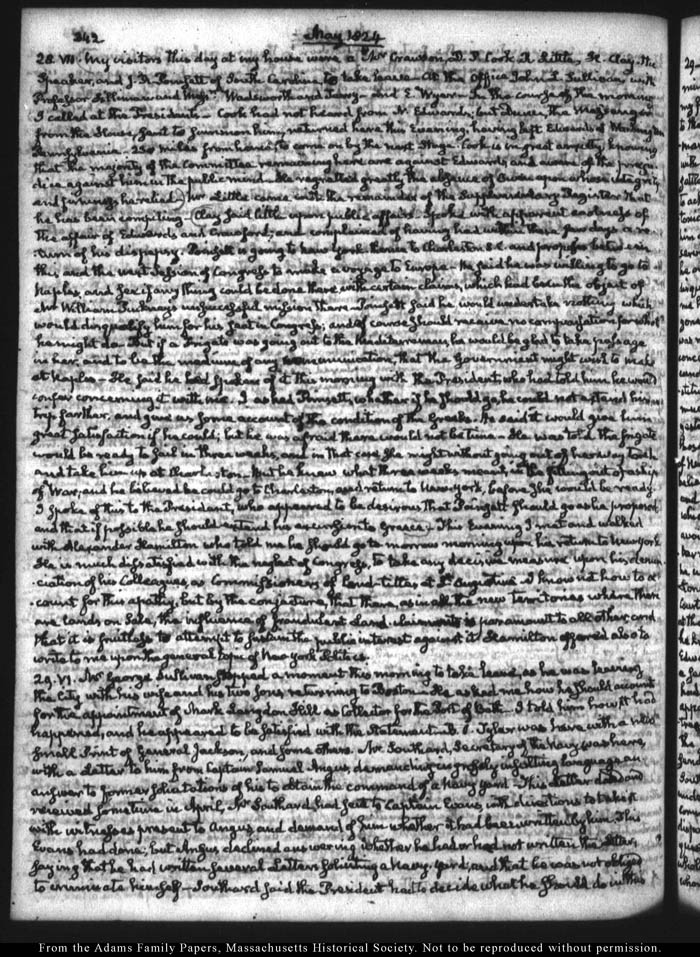 342 May 1824
28. VII. My visitors this day at my house were a Mr Crawson, D. P. Cook, R. Little, H. Clay, the
Speaker, and J. R. Poinsett of South Carolina, to take leave. At the Office John L. Sullivan with
Professor Silliman and Messrs Wadsworth and and S. Wyer. In the course of the morning
I called at the President's. Cook had not heard from N. Edwards; but the Messenger
from the House, sent to summon him, returned here this Evening, having left Edwards at Washington
Pennsylvania. 230 miles from hence, to come on by the next Stage. Cook is in great anxiety, knowing
that the majority of the Committee remaining here are against Edwards, and aware of the preju-
dice against him in the public mind. He regretted greatly the absence of Owen upon whose integrity
and fairness he relied. Mr Little came with the remainder of the Supplementary Register that
he has been compiling. Clay said little upon public affairs. Spoke with apparent coolness of
the affair of Edwards and Crawford; and complained of having had within these few days a re-
turn of his dyspepsy. Poinsett is going to New-York thence to Charleston S.C. and proposes between
this and the next Session of Congress to make a voyage to Europe. He said he was willing to go to
Naples, and see if any thing could be done there with certain claims, which had been the object of
Mr William Pinkney's unsuccessful mission there. Poinsett said he would undertake nothing which
would disqualify him for his seat in Congress; and of course should receive no compensation for what
he might do. But if a frigate was going out to the Mediterranean, he would be glad to take passage
in her, and to be the medium of any communication, that the Government might wish to make
at Naples. He said he had spoken of it this morning with the President, who had told him he would
confer concerning it with me. I asked Poinsett, whether if he should go, he could not extend his
trip farther, and give us some account of the condition of the Greeks. He said it would give him
great satisfaction if he could; but he was afraid there would not be time. He was told the frigate
would be ready to sail in three weeks, and in that case she might without going out of her way touch
and take him up at Charleston. But he knew what three weeks meant, in the fitting out of a ship
of War; and he believed he could go to Charleston, and return to New-York, before she would be ready.
I spoke of this to the President, who appeared to be desirous that Poinsett should go as he proposed
and that if possible he should extend his excursion to Greece. This Evening I met and walked
with Alexander Hamilton who told me he should go to morrow morning upon his return to New-York
He is much dissatisfied with the neglect of Congress, to take any decisive measure upon his denun-
ciation of his Colleagues, as Commissioners of land-titles at St Augustine. I know not how to ac-
count for this apathy, but by the conjecture, that there, as in all the new territories where there
are lands on Sale, the influence of fraudulent Land claimants is paramount to all other, and
that it is fruitless to attempt to sustain the public interest against it. Hamilton offered also to
write to me upon the general topic of New-York Politics.
29. VI. Mr George Sullivan stopped a moment this morning to take leave, as he was leaving
the City with his wife and his two sons, returning to Boston. He asked me how he should account
for the appointment of Mark Langdon Hill as Collector for the Port of Bath. I told him how it had
happened, and he appeared to be satisfied with the Statement. B. O. Tyler was here with a
small Print of General Jackson, and some others. Mr Southard, Secretary of the Navy was here,
with a Letter to him from Captain Samuel Angus, demanding in grossly insulting language an
answer to former solicitations of his to obtain the command of a Navy yard. This Letter dated and
received sometime in April, Mr Southard had sent to Captain Evans, with directions to take it
with witnesses present to Angus, and demand of him whether it had been written by him. This
Evans had done; but Angus declined answering whether he had or had not written the Letter,
saying that he had written several Letters soliciting a Navy Yard; and that he was not obliged
to criminate himself. Southard said the President had to decide what he should do in this
From the Adams Family Papers, Massachusetts Historical Society. Not to be reproduced without permission.